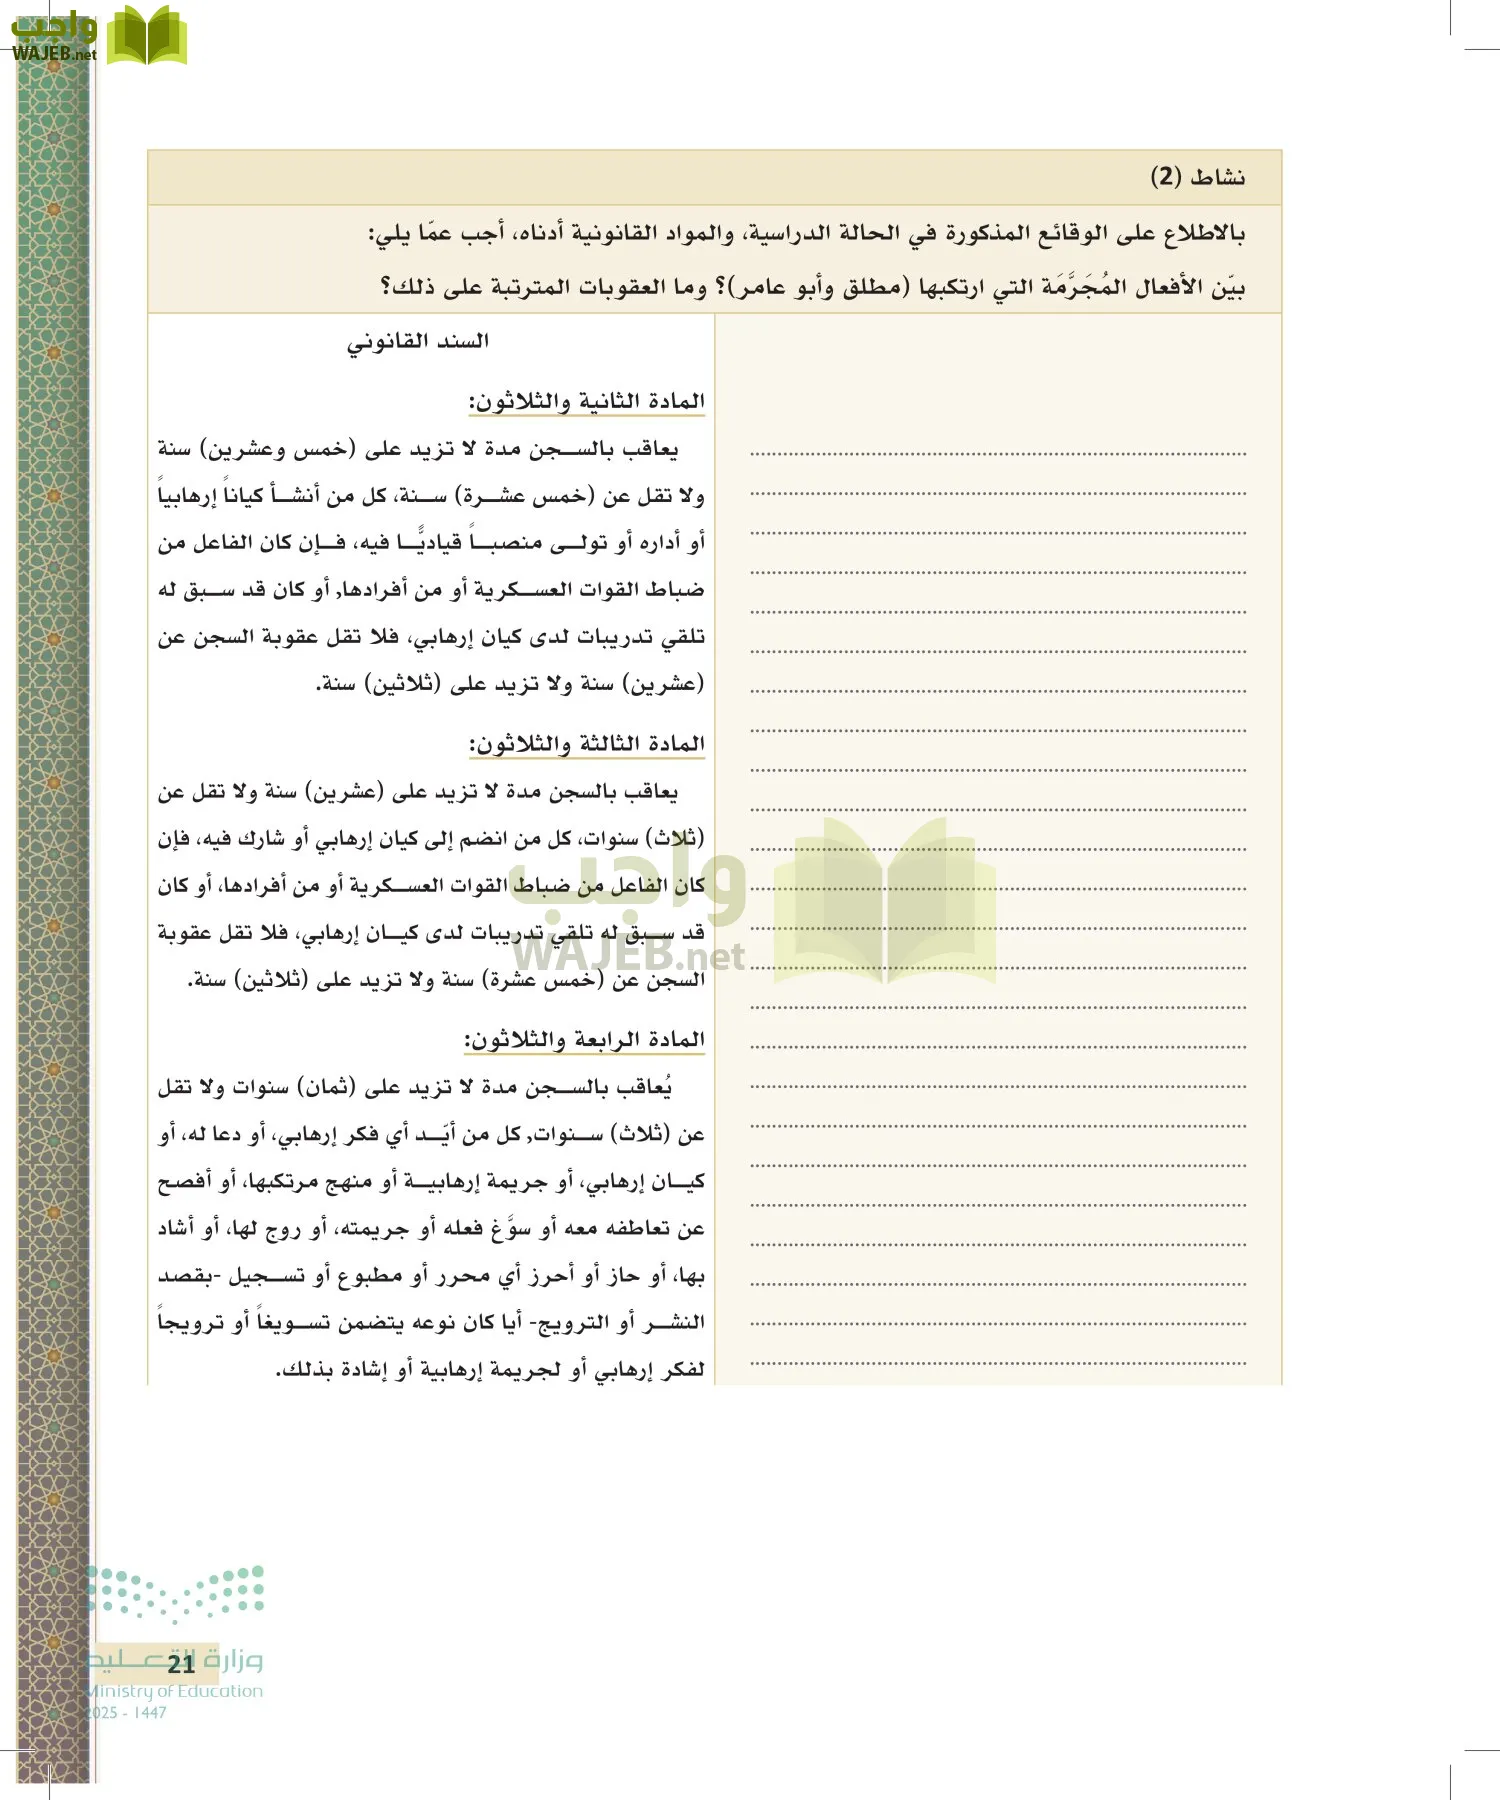 واجب
WAJEB.net
نشاط (2)
بالاطلاع على الوقائع المذكورة في الحالة الدراسية، والمواد القانونية أدناه، أجب عمّا يلي:
بيّن الأفعال المُجَرَّمَة التي ارتكبها (مطلق وأبو عامر)؟ وما العقوبات المترتبة على ذلك؟
السند القانوني
المادة الثانية والثلاثون:
يعاقب بالسجن مدة لا تزيد على (خمس وعشرين) سنة
ولا تقل عن (خمس عشرة) سنة، كل من أنشأ كياناً إرهابياً
أو أداره أو تولى منصباً قياديًّا فيه، فإن كان الفاعل من
ضباط القوات العسكرية أو من أفرادها, أو كان قد سبق له
تلقي تدريبات لدى كيان إرهابي، فلا تقل عقوبة السجن عن
(عشرين) سنة ولا تزيد على (ثلاثين) سنة.
المادة الثالثة والثلاثون:
يعاقب بالسجن مدة لا تزيد على (عشرين) سنة ولا تقل عن
(ثلاث) سنوات، كل من انضم إلى كيان إرهابي أو شارك فيه، فإن
كان الفاعل من ضباط القوات العسكرية أو من أفرادها، أو كان
قد سبق له تلقي تدريبات لدى كيان إرهابي، فلا تقل عقوبة
السجن عن (خمس عشرة) سنة ولا تزيد على (ثلاثين) سنة.
المادة الرابعة والثلاثون:
يُعاقب بالسجن مدة لا تزيد على (ثمان) سنوات ولا تقل
عن (ثلاث) سنوات, كل من أيّد أي فكر إرهابي، أو دعا له، أو
كيان إرهابي، أو جريمة إرهابية أو منهج مرتكبها، أو أفصح
عن تعاطفه معه أو سوَّغ فعله أو جريمته، أو روج لها، أو أشاد
بها، أو حاز أو أحرز أي محرر أو مطبوع أو تسجيل -بقصد
النشر أو الترويج- أيا كان نوعه يتضمن تسويغاً أو ترويجاً
لفكر إرهابي أو لجريمة إرهابية أو إشادة بذلك.
واجب
WAJEB.net
وزارة التعليم
21
Ministry of Education
2025 - 1447